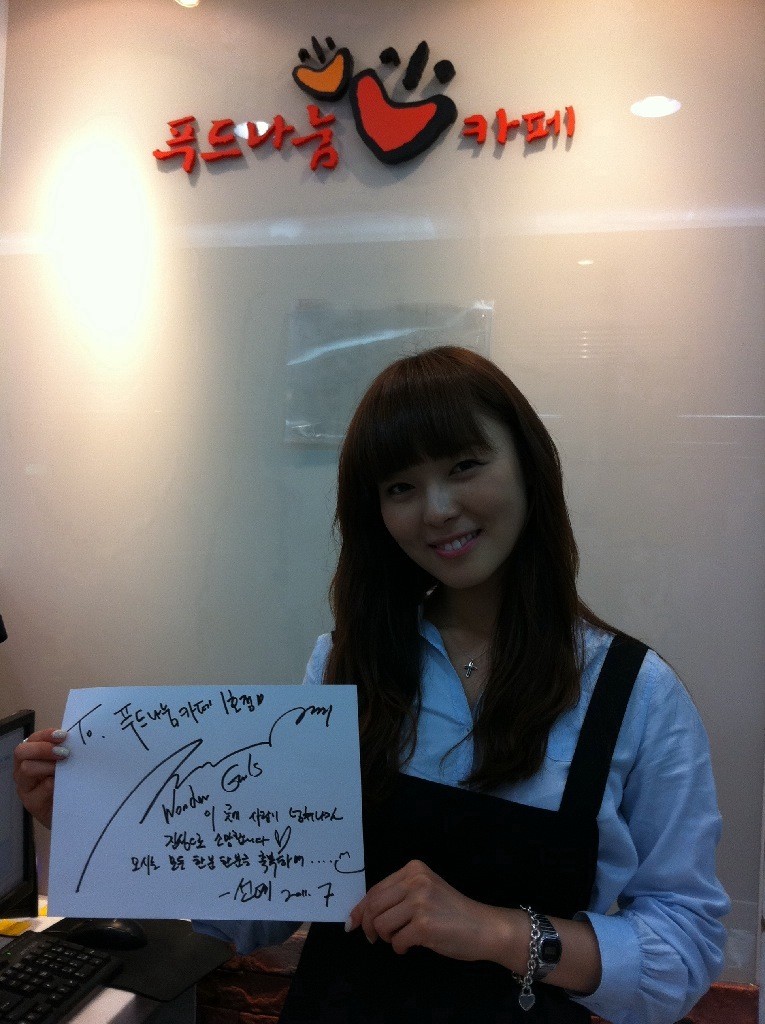 푸드나눔 카페
To. 푸드나눔 카페 1호점♡
Wonder Girls
이 곳에 사랑이 넘쳐나길
진심으로 소망합니다 ♡
오시는 모든 한분 한분을 축복하며 .....
- 선예 2011. 7